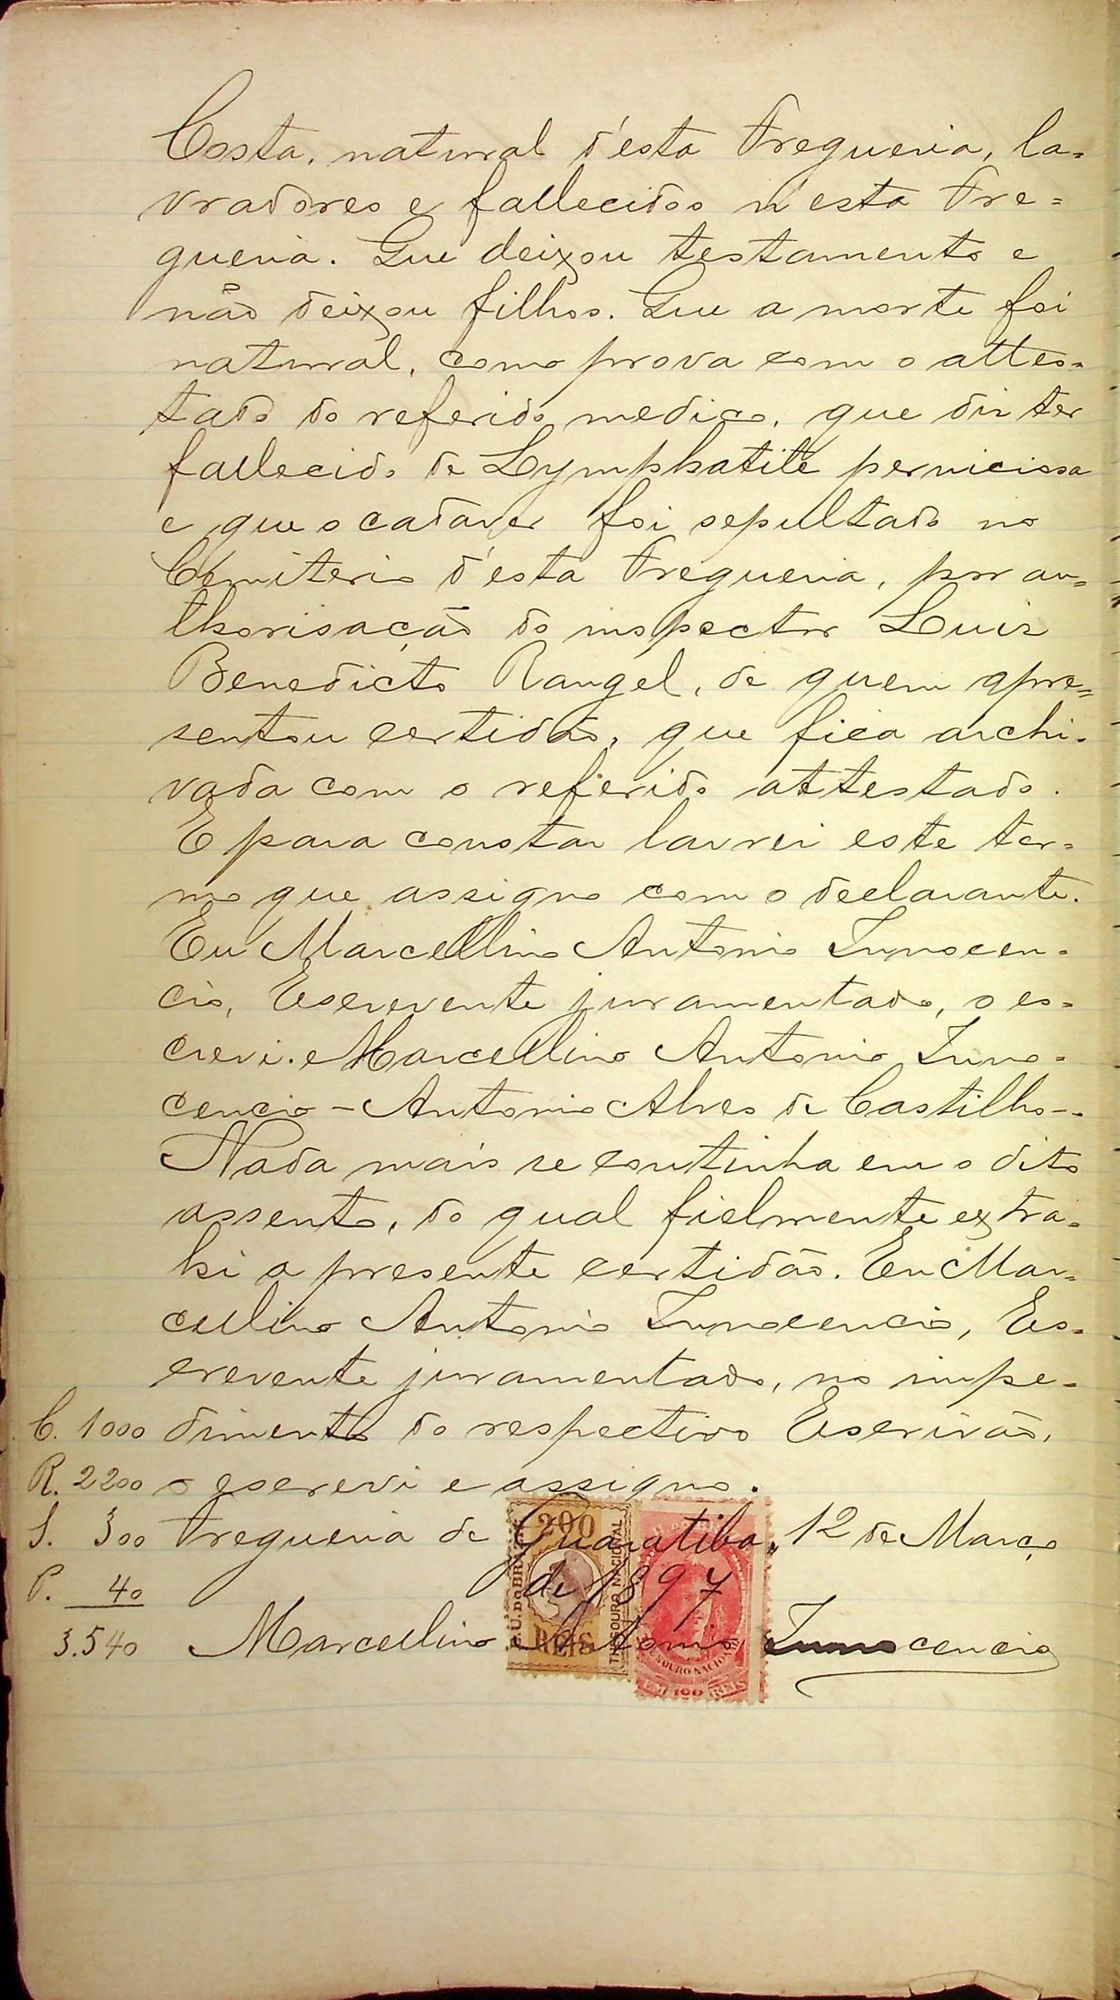 Costa, natural d'esta Freguezia, la-
vradores e fallecidos n'esta Fre-
guezia. Que deixou testamento e
não deixou filhos. Que a morte foi
natural, como prova com o attes-
tado do referido medico, que diz ter
fallecido de Lymphatite perniciosa
e que o cadaver foi sepultado no
Cemiterio d'esta Freguezia, por au-
thorisação do inspector Luiz
Benedicto Rangel, de quem apre-
sentou certidão, que fica archi-
vada com o referido attestado.
E para constar lavrei este ter-
mo que assigno com o declarante.
Eu Marcellino Antonio Innocen-
cio, Escrevente juramentado, o es-
crevi. Marcellino Antonio Inno-
cencio - Antonio Alves de Castilho -.
Nada mais se continha em o dito
assento, do qual fielmente extra-
hi a presente certidão. Eu Mar-
cellino Antonio Innocencio, Es-
crevente juramentado, no impe-
C. 1000 dimento do respectivo Escrivão,
R. 2200 o escrevi e assigno.
S. 300 Freguezia de Guaratiba, 12 de Março
P. 40 de 1897
3.540 Marcellino Antonio Innocencio
200
E.U. DO BRAZIL
THESOURO NACIONAL
REIS
THESOURO NACIONAL
100 REIS